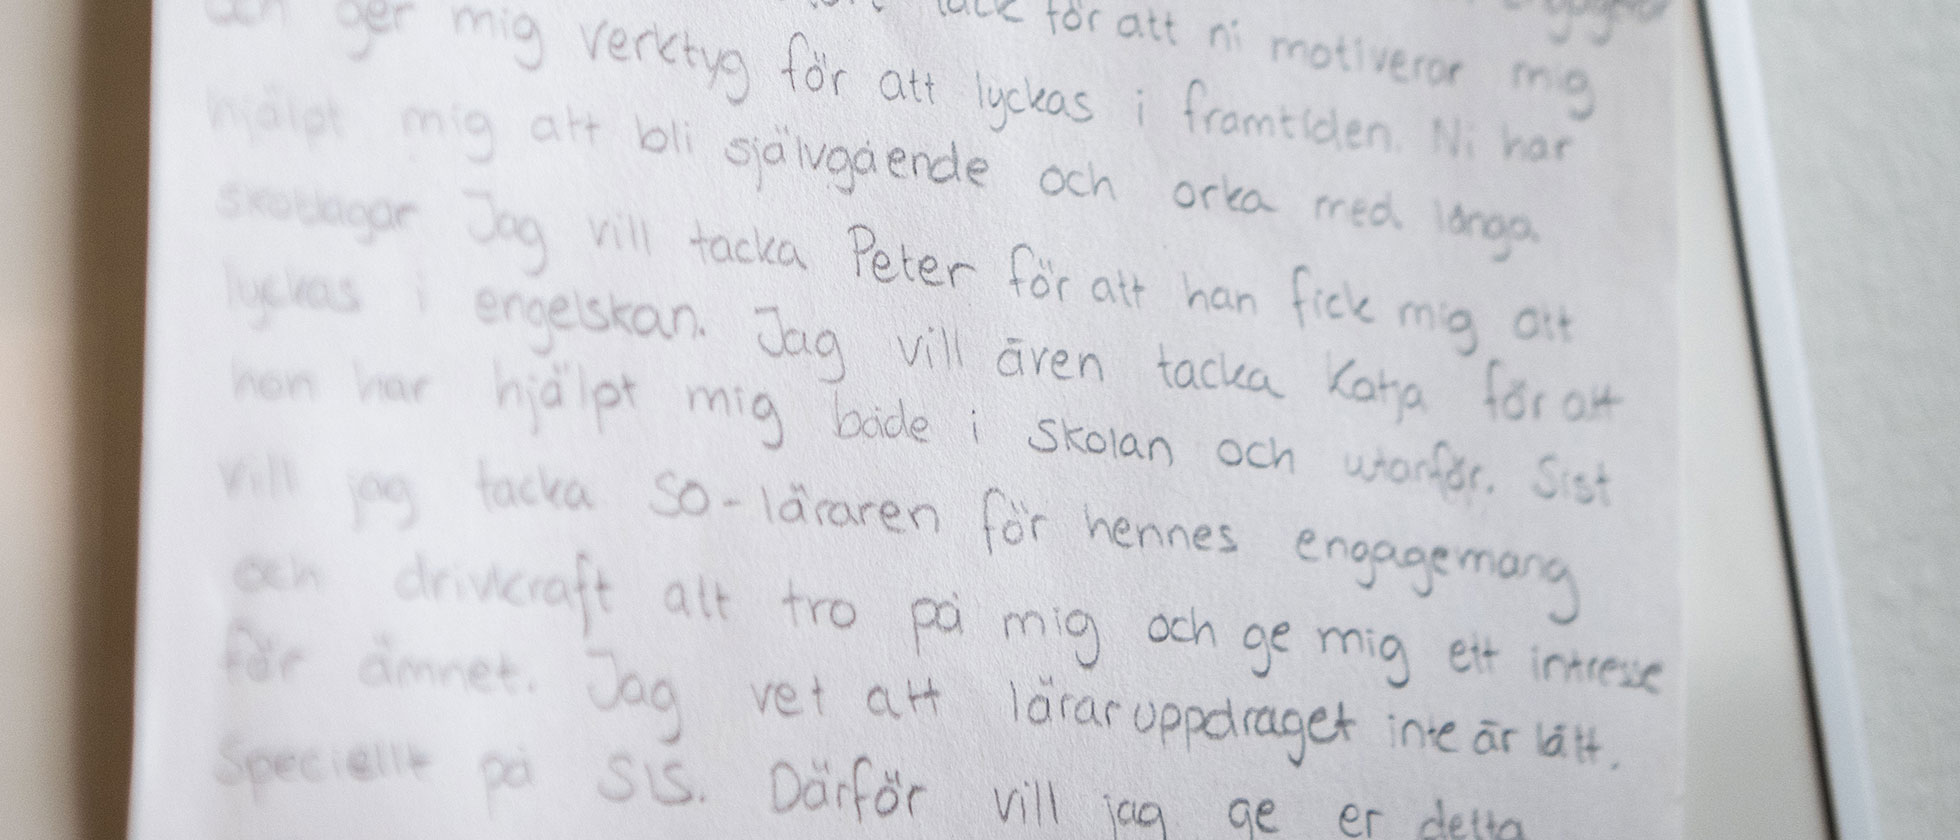 tack för att ni motiverar mig
och ger mig verktyg för att lyckas i framtiden. Ni har
hjälpt mig att bli självgående och orka med långa
skoldagar Jag vill tacka Peter för att han fick mig att
lyckas i engelskan. Jag vill även tacka Katja för att
hon har hjälpt mig både i skolan och utanför. Sist
vill jag tacka SO-läraren för hennes engagemang
och drivkraft att tro på mig och ge mig ett intresse
för ämnet. Jag vet att läraruppdraget inte är lätt.
Speciellt på SiS. Därför vill jag ge er detta